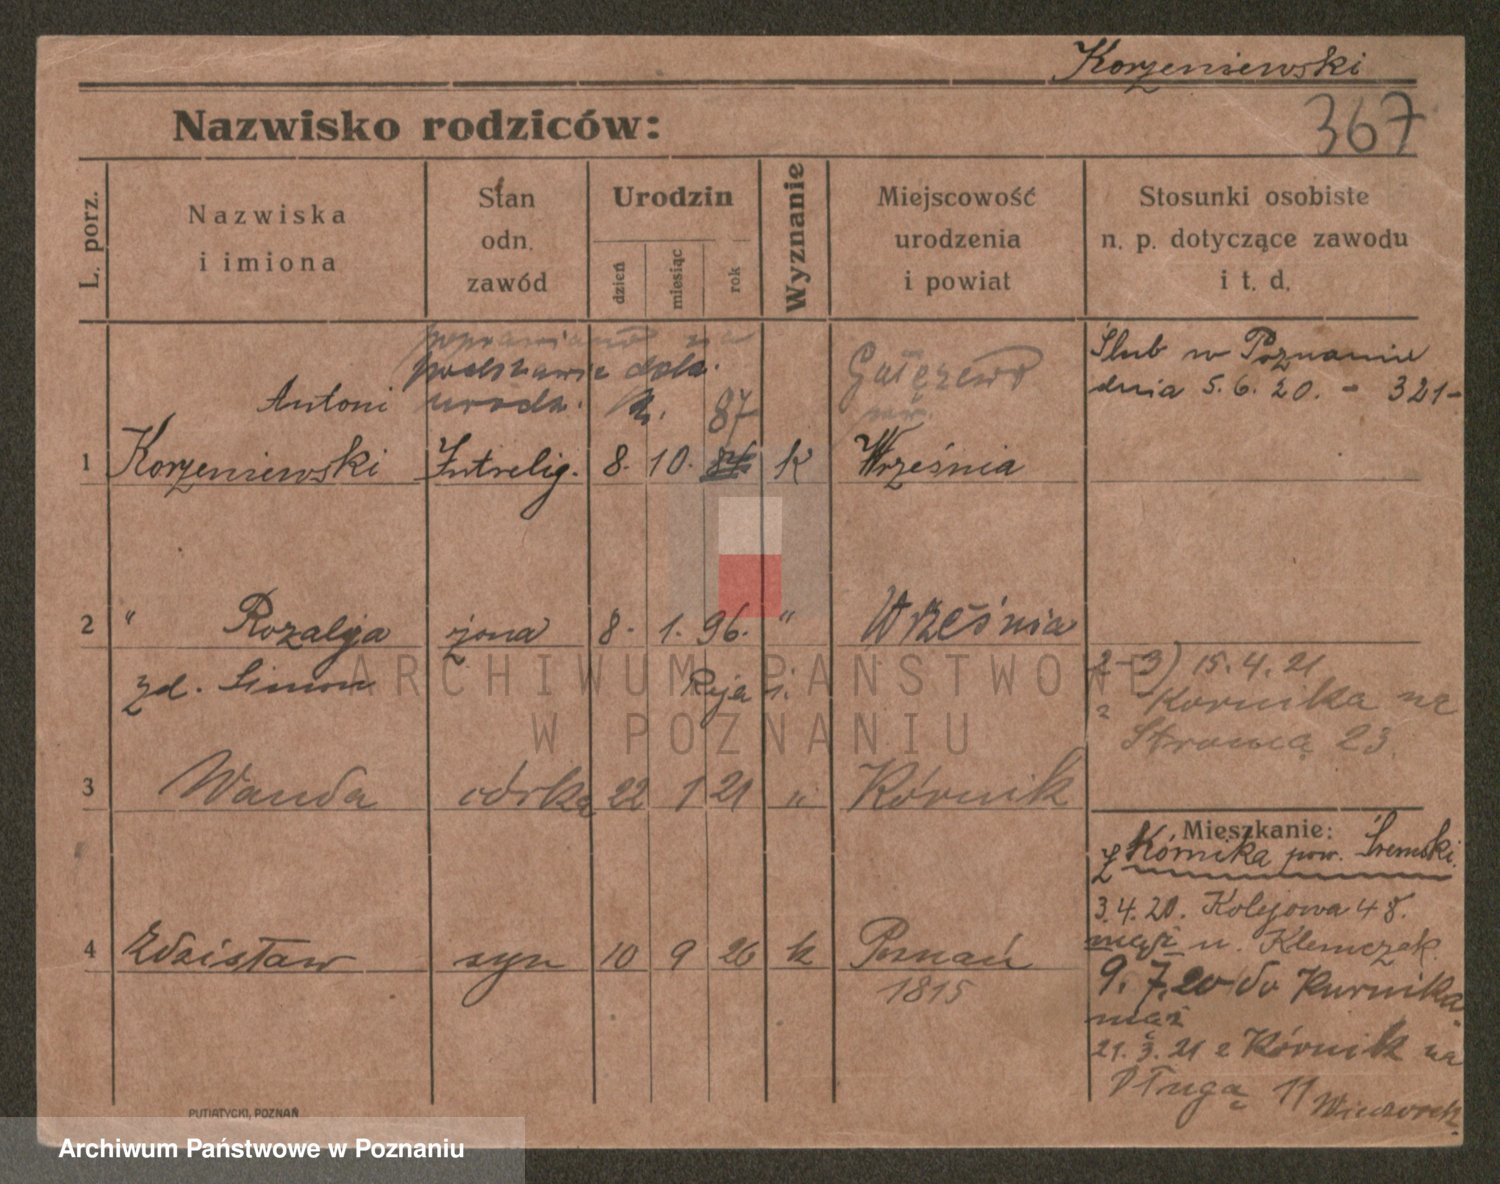 Korzeniewski
Nazwisko rodziców:
367
L. porz.
Nazwiska
i imiona
Stan
odn.
zawód
Urodzin
dzień
miesiąc
rok
Wyznanie
Miejscowość
urodzenia
i powiat
Stosunki osobiste
n. p. dotyczące zawodu
i t. d.
poprawiono na
podstawie dok.
urodz.
87
Gałęzewo
Ślub w Poznaniu
dnia 5.6.20. - 321-
1 Antoni
Korzeniewski Introlig. 8. 10. k Września
2 " Rozalja żona 8. 1. 96. " Września
zd. Simon
2-3) 15.4.21
z Kórnika na
23.
3 Wanda córka 22 1 21 " Kórnik
Mieszkanie:
z Kórnika pow. Śremski.
3.4.20. Kolejowa 48.
mąż u. Klemczak.
4 Zdzisław syn 10 9 26 k Poznań
1815
9. 7. 20 do Kurnika
mąż
21. 3. 21 z Kórnik na
Długą 11 Wieczorek
PUTIATYCKI, POZNAŃ
ARCHIWUM PAŃSTWOWE
W POZNANIU
Archiwum Państwowe w Poznaniu